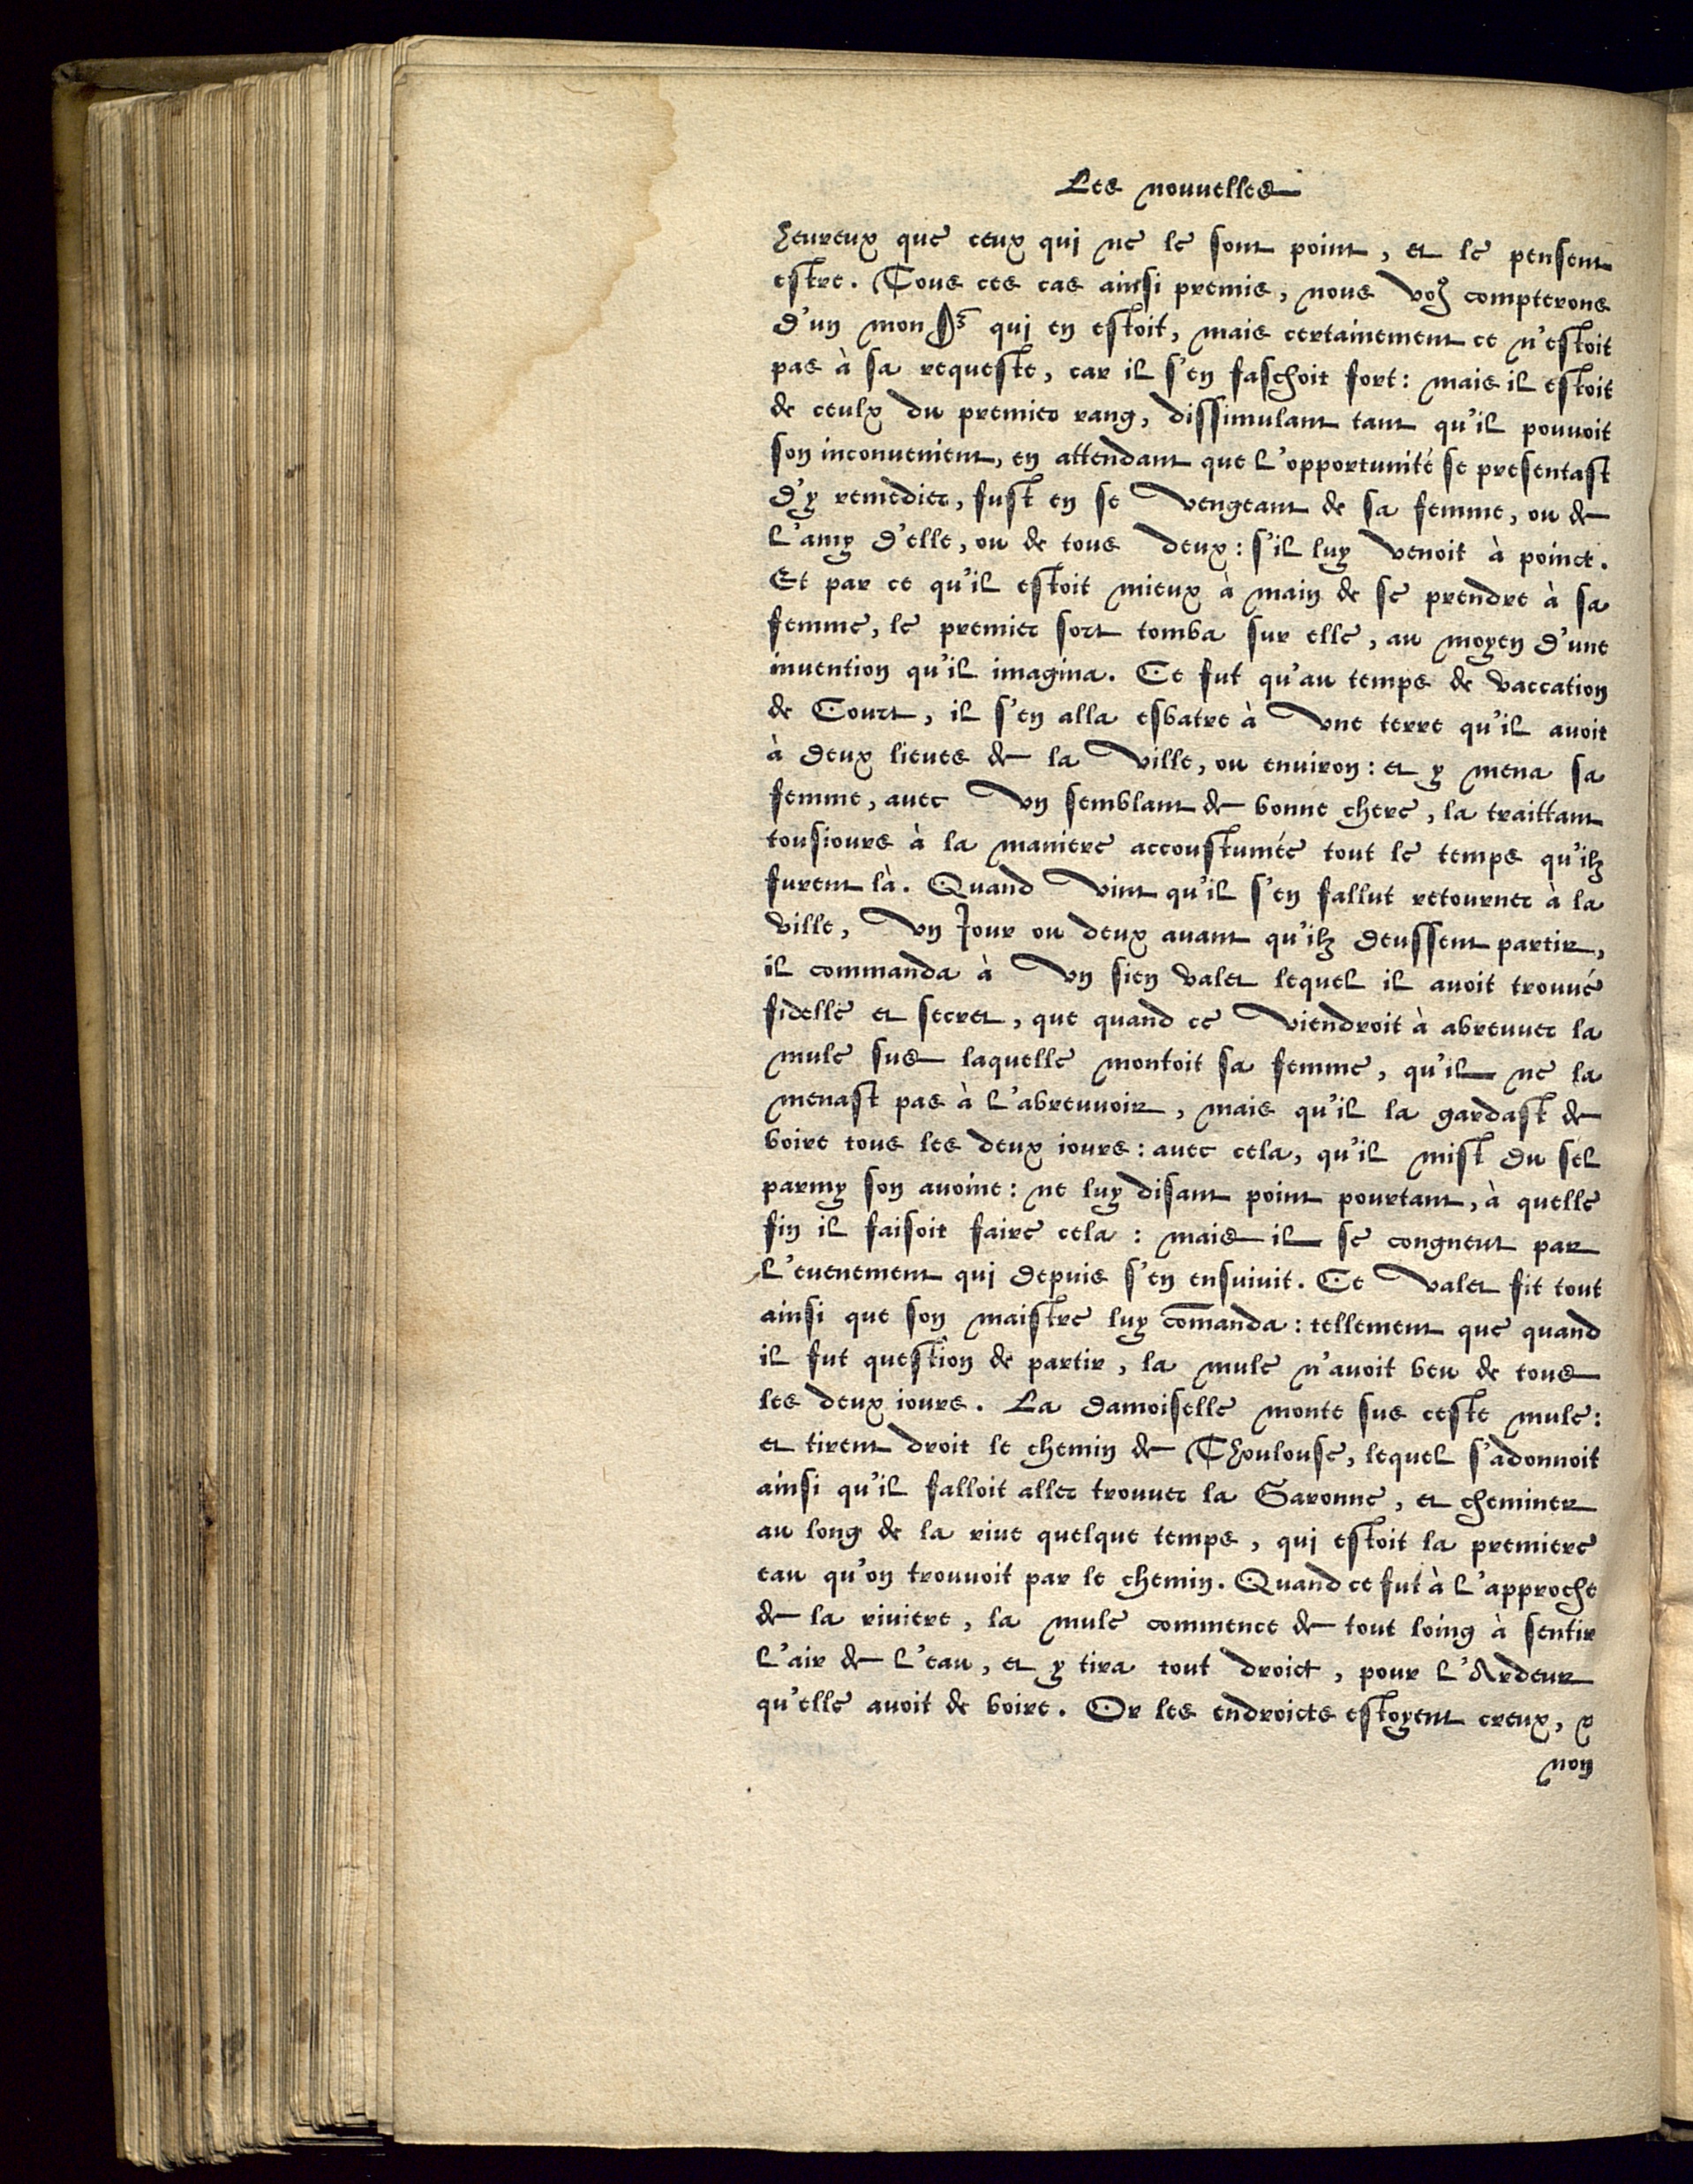 Les nouuelles
heureux que ceux qui ne le sont point, et le pensent
estre. Tous ces cas ainsi premis, nous vo⁹ compterons
d'un mon Sʳ qui en estoit, mais certainement ce n'estoit
pas à sa requeste, car il s'en faschoit fort: mais il estoit
de ceulx du premier rang, dissimulant tant qu'il pouuoit
son inconuenient, en attendant que l'opportunité se presentast
d'y remedier, fust en se vengeant de sa femme, ou de
l'amy d'elle, ou de tous deux: s'il luy venoit à poinct.
Et par ce qu'il estoit mieux à main de se prendre à sa
femme, le premier sort tomba sur elle, au moyen d'une
inuention qu'il imagina. Ce fut qu'au temps de vaccation
de Court, il s'en alla esbatre à vne terre qu'il auoit
à deux lieues de la ville, ou enuiron: et y mena sa
femme, auec vn semblant de bonne chere, la traittant
tousiours à la maniere accoustumée tout le temps qu'ilz
furent là. Quand vint qu'il s'en fallut retourner à la
ville, vn Jour ou deux auant qu'ilz deussent partir,
il commanda à vn sien valet lequel il auoit trouué
fidelle et secret, que quand ce viendroit à abreuuer la
mule sus laquelle montoit sa femme, qu'il ne la
menast pas à l'abreuuoir, mais qu'il la gardast de
boire tous les deux iours: auec cela, qu'il mist du sel
parmy son auoine: ne luy disant point pourtant, à quelle
fin il faisoit faire cela: mais il se congneut par
l'euenement qui depuis s'en ensuiuit. Ce valet fit tout
ainsi que son maistre luy com̄anda: tellement que quand
il fut question de partir, la mule n'auoit beu de tous
les deux iours. La damoiselle monte sus ceste mule:
et tirent droit le chemin de Thoulouse, lequel s'adonnoit
ainsi qu'il falloit aller trouuer la Garonne, et cheminer
au long de la riue quelque temps, qui estoit la premiere
eau qu'on trouuoit par le chemin. Quand ce fut à l'approche
de la riuiere, la mule commence de tout loing à sentir
l'air de l'eau, et y tira tout droict, pour l'Ardeur
qu'elle auoit de boire. Or les endroicts estoyent creux, &
non